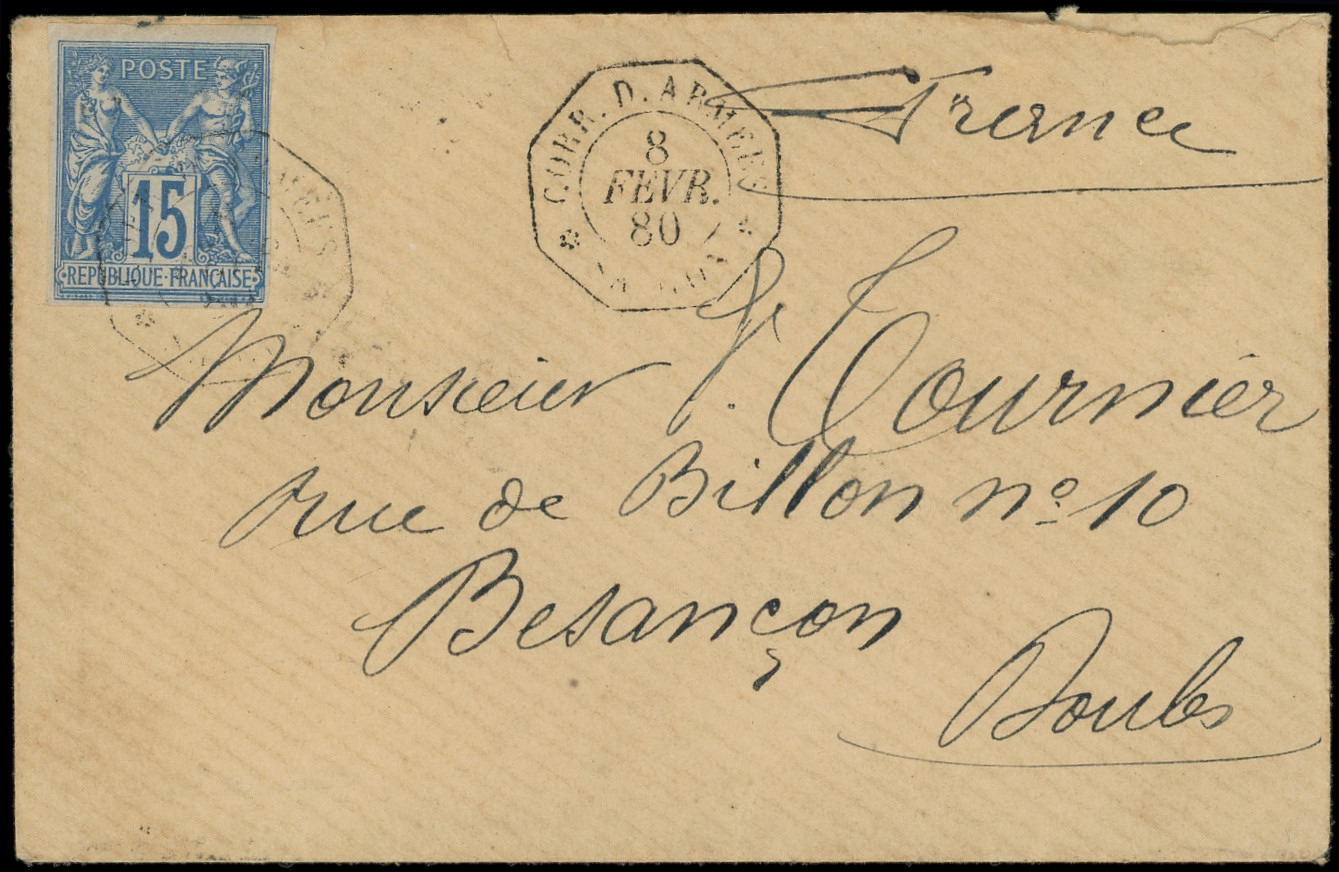 POSTE
15
REPUBLIQUE·FRANÇAISE
CORR. D. ARMÉES
8
FEVR.
80
France
Monsieur Tournier
rue de Billon nº 10
Besançon
Doubs